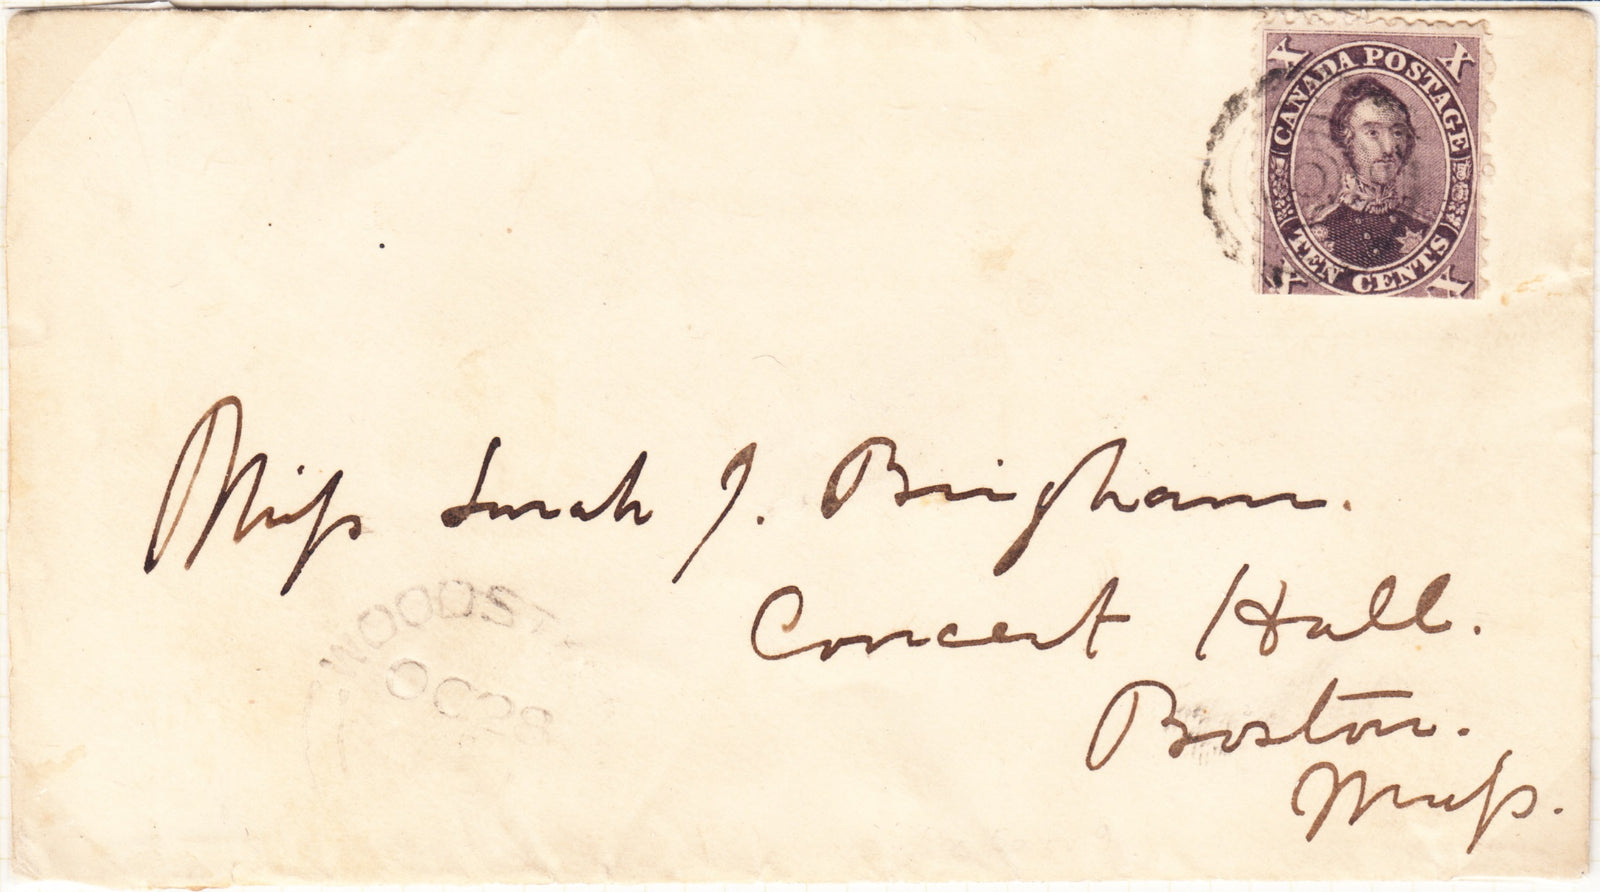 X CANADA POSTAGE X
X TEN CENTS X
Miss Sarah J. Bingham.
Concert Hall.
Boston.
Mass.